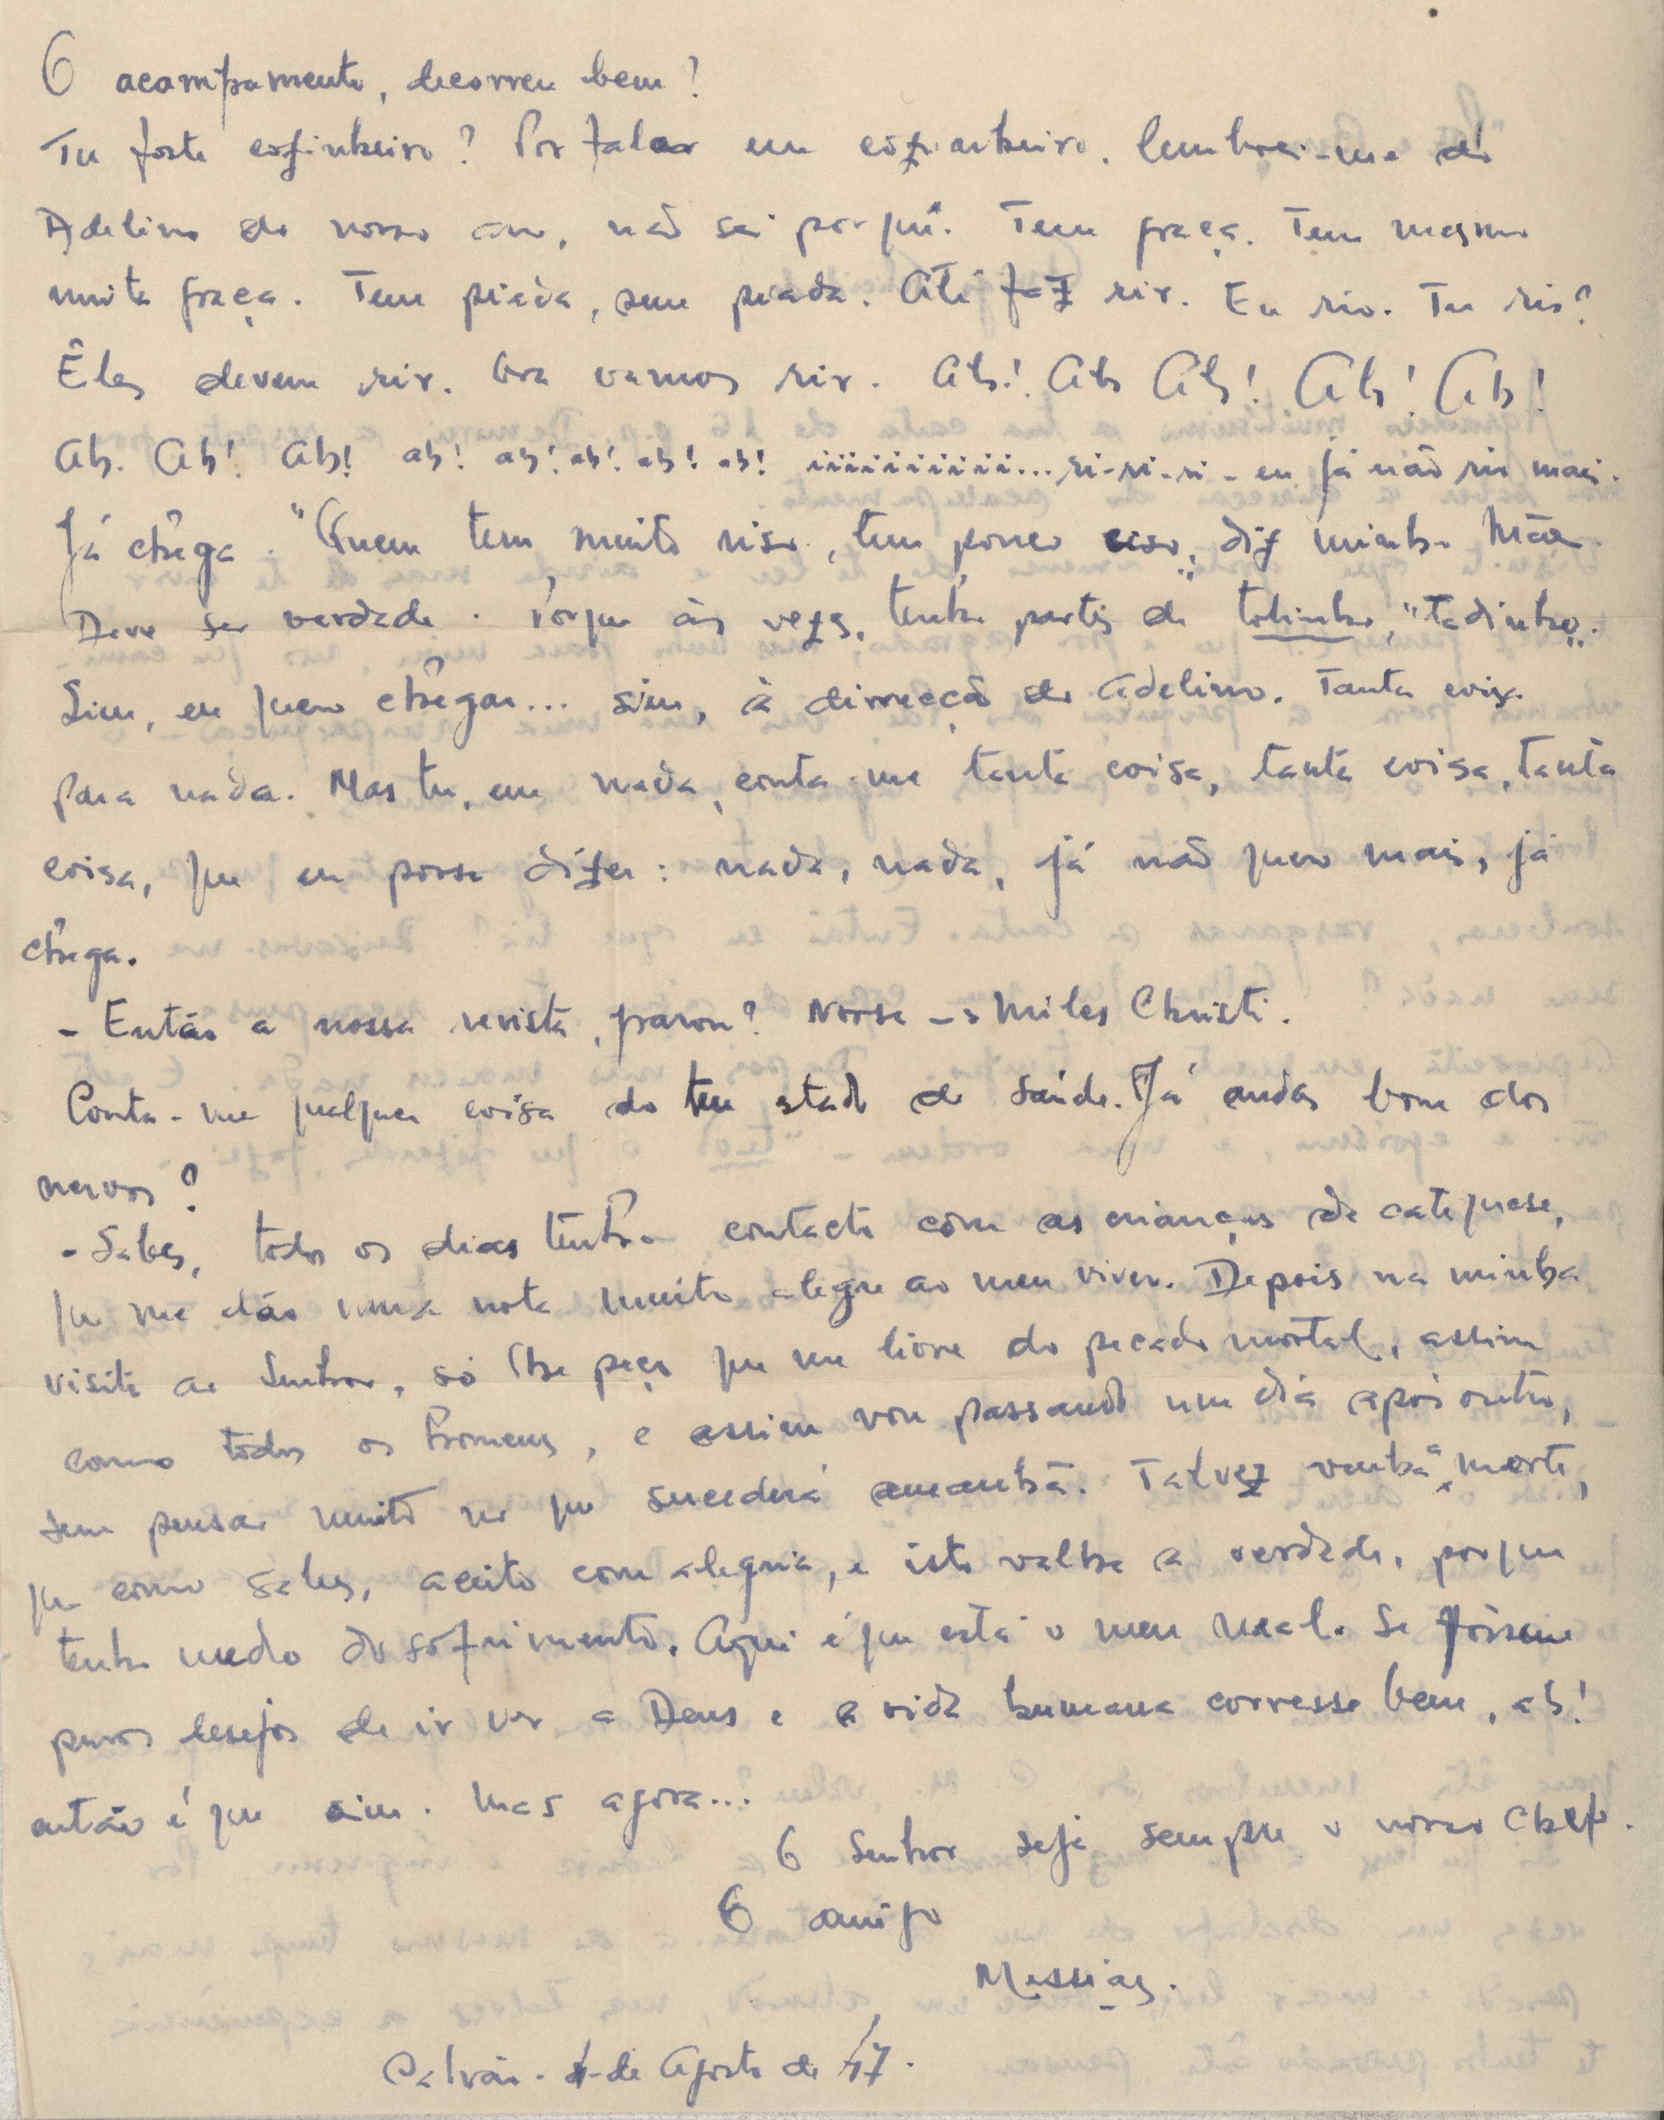 O acampamento, decorreu bem?
Tu foste cozinheiro? Por falar em cozinheiro, lembrei-me do
Adelino do nosso ano, não sei porquê. Tem graça. Tem mesmo
muita graça. Tem piada, sem piada. Até faz rir. Eu rio. Tu ris?
Êles devem rir. Ora vamos rir. Ah! Ah Ah! Ah! Ah!
Ah. Ah! Ah! ah! ah! ah! ah! ah! iiiiiiiiii... ri-ri-ri - eu já não rio mais.
Já chêga. "Quem tem muito riso, tem pouco siso", diz minha Mãe.
Deve ser verdade. Porque às vezes, tenho partes de tolinho, "tadinho".
Sim, eu quero chêgar... sim, à direcção do Adelino. Tanta coisa
para nada. Mas tu, em nada, conta-me tanta coisa, tanta coisa, tanta
coisa, que eu possa dizer: nada, nada, já não quero mais, já
chêga.
- Então a nossa revista, parou? Nossa -> Miles Christi.
Conta-me qualquer coisa do teu estado de saúde. Já andas bom dos
nervos?
- Sabes, todos os dias tenho contacto com as crianças da catequese,
que me dão uma nota muito alegre ao meu viver. Depois na minha
visita ao Senhor, só lhe peço que me livre do pecado mortal, assim
como todos os homens, e assim vou passando um dia após outro,
sem pensar muito no que sucederá amanhã. Talvez venha a morte,
que como sabes, aceito com alegria, e isto valha a verdade, porque
tenho medo do sofrimento. Aqui é que está o meu mal. Se fôssem
puros desejos de ir ver a Deus e a vida humana corresse bem, ah!
então é que sim. Mas agora...
O Senhor seja sempre o nosso Chefe.
O amigo
Messias.
Calvão - 4 de Agosto de 47.